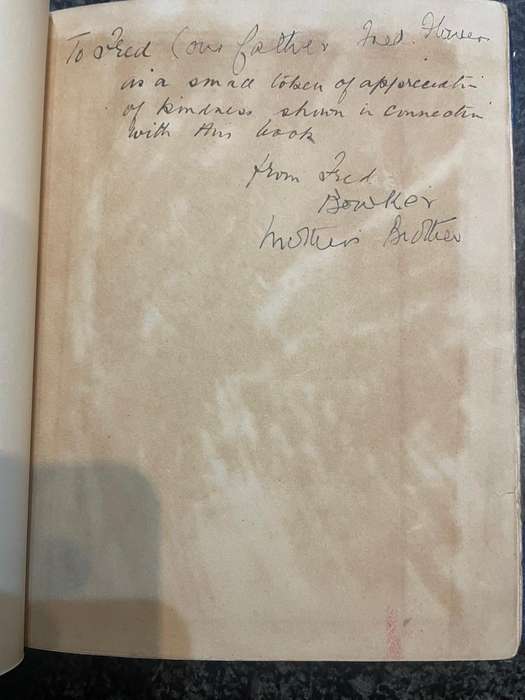 To Fred (our father Fred.
as a small token of appreciati
of kindness shown in connection
with this book
from Fred
Bowker
Mothers Brother